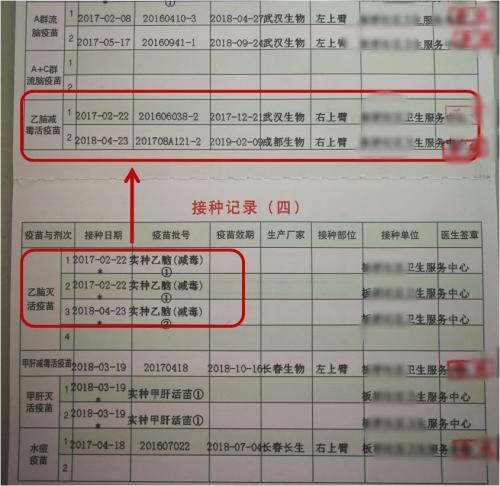 A群流脑疫苗 1 2017-02-08 20160410-3 2018-04-27 武汉生物 左上臂 卫生服务
2 2017-05-17 20160941-1 2018-09-24 武汉生物 左上臂 卫生服务中心
A+C群流脑疫苗 1
2
乙脑减毒活疫苗 1 2017-02-22 201606038-2 2017-12-21 武汉生物 右上臂 卫生服务中心
2 2018-04-23 201708A121-2 2019-02-09 成都生物 右上臂 卫生服务中心
接种记录(四)
疫苗与剂次 接种日期 疫苗批号 疫苗效期 生产厂家 接种部位 接种单位 医生签章
乙脑灭活疫苗 1 2017-02-22 * 实种乙脑(减毒)① 板 卫生服务中心
2 2017-02-22 * 实种乙脑(减毒)① 板 卫生服务中心
3 2018-04-23 * 实种乙脑(减毒)② 板 卫生服务中心
4
甲肝减毒活疫苗 2018-03-19 20170418 2018-10-16 长春生物 左上臂 板 卫生服务中心
甲肝灭活疫苗 1 2018-03-19 * 实种甲肝活苗① 板 卫生服务中心
2 2018-03-19 * 实种甲肝活苗① 板 卫生服务中心
水痘疫苗 1 2017-04-18 201607022 2018-07-04 长春长生 右上臂 板 卫生服务中心
2